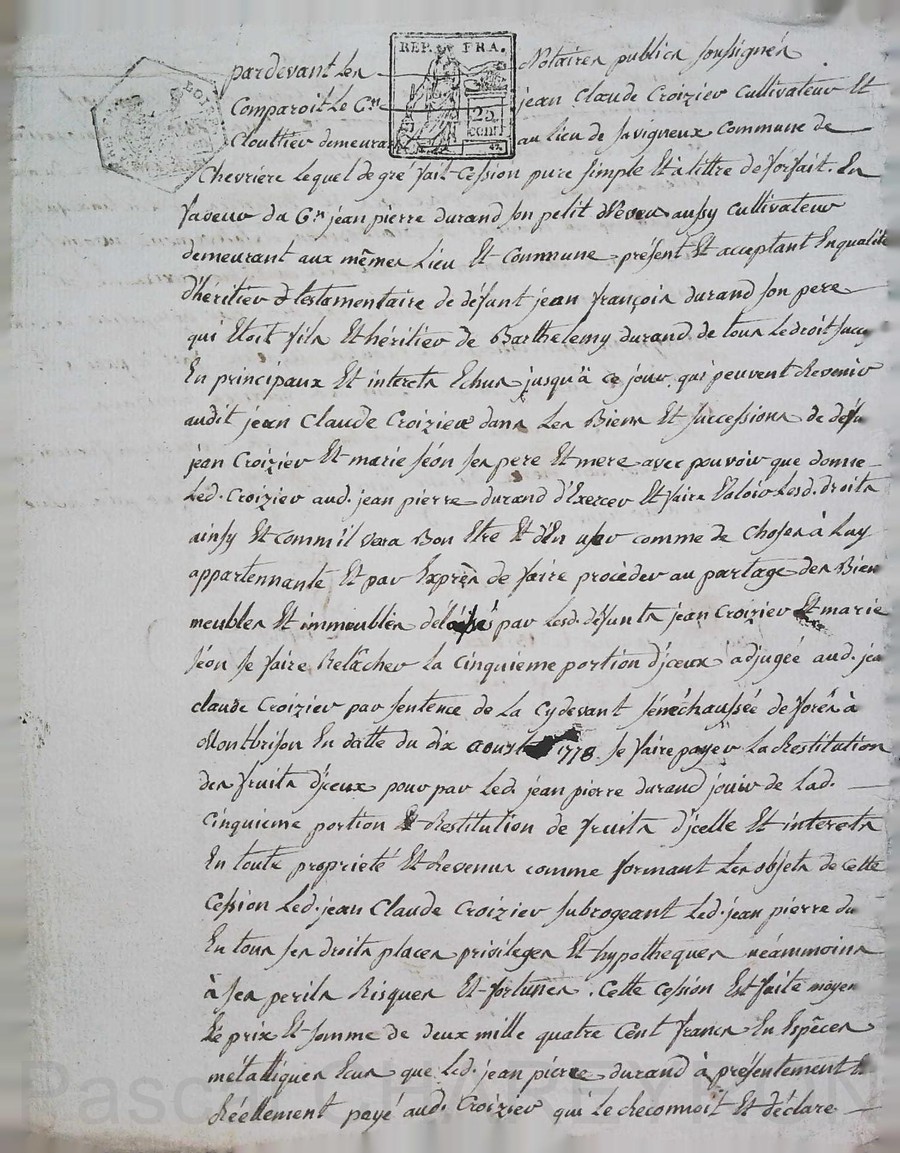 REP. FRA.
25 cent
pardevant Les Notaires publics soussignés
Comparoit Le Cen jean Claude Croizier Cultivateur Et
Cloutier demeura au lieu de savigneux Commune de
Chevriere lequel de gré fait Cession pure simple Et à tittre de forfait. En
faveur du Cen jean pierre durand son petit Neveu aussy Cultivateur
demeurant aux mêmes Lieu Et Commune présent Et acceptant En qualité
d'héritier testamentaire de défunt jean françois durand son pere
qui Etoit fils Et héritier de Barthelemy durand de tous Les droit
En principaux Et interets Echus jusqu'à ce jour qui peuvent Revenir
audit jean Claude Croizier dans Les Biens Et successions de défu
jean Croizier Et marie séon ses pere Et mere avec pouvoir que donne
Led. Croizier aud. jean pierre durand d'Exercer Et faire Valoir Lesd. droits
ainsy Et comm'il Vera Bon Etre Et d'En user comme de Choses à Luy
appartennante Et par Exprès de faire procéder au partage des Bien
meubles Et immeubles délaissés par Lesd. défunts jean Croizier Et marie
séon se faire Relâcher la Cinquieme portion d'jceux adjugée aud. jea
claude Croizier par sentence de La Cydevant sénéchaussée de forêts à
Montbrison En datte du dix aoust 1778 se faire payer La Restitution
des fruits d'jceux pour par Led. jean pierre durand jouir de Lad.
Cinquieme portion Et Restitution de fruits d'jcelle Et interets
En toute propriété Et Revenus comme formant Les objets de Cette
Cession Led. jean Claude Croizier subrogeant Led. jean pierre du
En tous ses droits places privileges Et hypotheques néammoins
à ses perils Risques Et fortunes. Cette Cession Est faite moyen
Le prix Et somme de deux mille quatre Cent francs En Espèces
métalliques Ecus que Led. jean pierre durand à présentement
Réellement payé aud. Croizier qui Le Reconnoit Et déclare